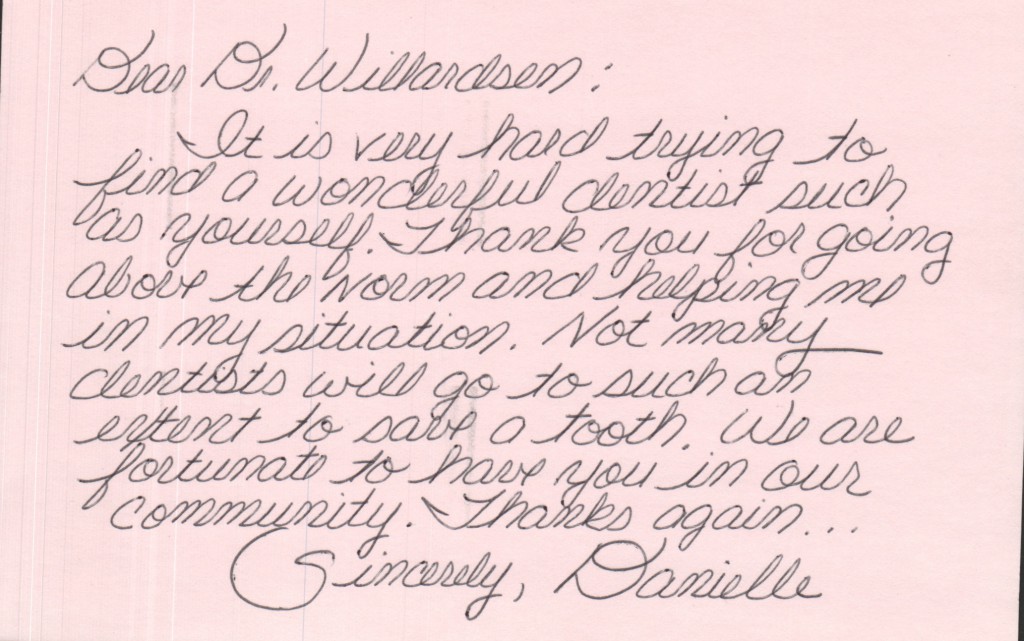 Dear Dr. Willardsen:
It is very hard trying to
find a wonderful dentist such
as yourself. Thank you for going
above the norm and helping me
in my situation. Not many
dentists will go to such an
extent to save a tooth. We are
fortunate to have you in our
community. Thanks again...
Sincerely, Danielle